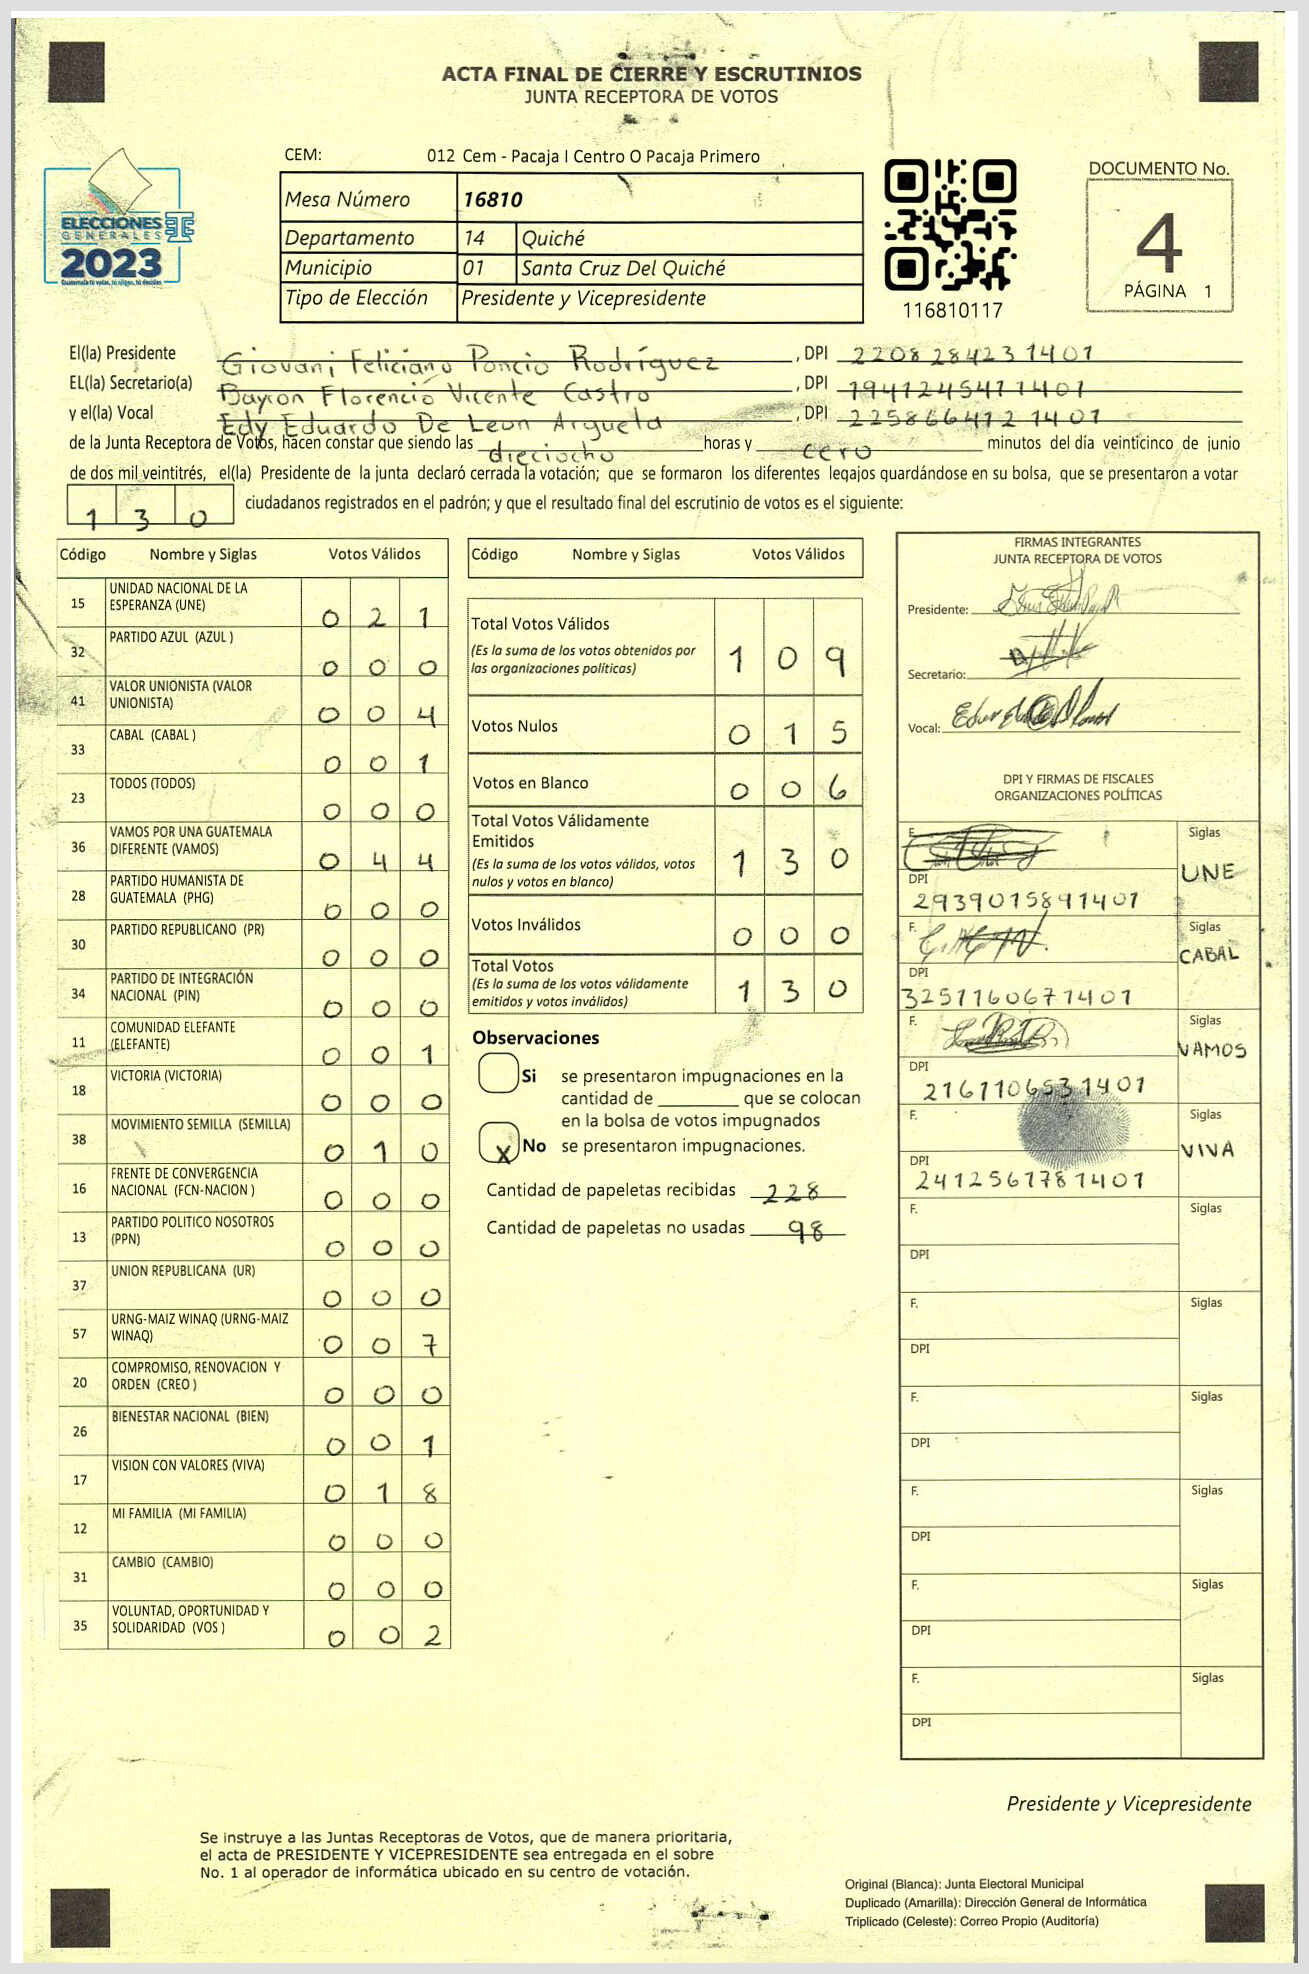 ACTA FINAL DE CIERRE Y ESCRUTINIOS
JUNTA RECEPTORA DE VOTOS
CEM: 012 Cem - Pacaja I Centro O Pacaja Primero
Mesa Número 16810
Departamento 14 Quiché
Municipio 01 Santa Cruz Del Quiché
Tipo de Elección Presidente y Vicepresidente
ELECCIONES
GENERALES
2023
116810117
DOCUMENTO No.
4
PÁGINA 1
El(la) Presidente Giovani Feliciano Poncio Rodríguez, DPI 2208284231401
EL(la) Secretario(a) Bayron Florencio Vicente Castro, DPI 1941245411401
y el(la) Vocal Edy Eduardo De Leon Argueta, DPI 2258664121401
de la Junta Receptora de Votos, hacen constar que siendo las dieciocho horas y cero minutos del día veinticinco de junio
de dos mil veintitrés, el(la) Presidente de la junta declaró cerrada la votación; que se formaron los diferentes legajos quardándose en su bolsa, que se presentaron a votar
130 ciudadanos registrados en el padrón; y que el resultado final del escrutinio de votos es el siguiente:
Código Nombre y Siglas Votos Válidos
15 UNIDAD NACIONAL DE LA ESPERANZA (UNE) 0 2 1
32 PARTIDO AZUL (AZUL ) 0 0 0
41 VALOR UNIONISTA (VALOR UNIONISTA) 0 0 4
33 CABAL (CABAL ) 0 0 1
23 TODOS (TODOS) 0 0 0
36 VAMOS POR UNA GUATEMALA DIFERENTE (VAMOS) 0 4 4
28 PARTIDO HUMANISTA DE GUATEMALA (PHG) 0 0 0
30 PARTIDO REPUBLICANO (PR) 0 0 0
34 PARTIDO DE INTEGRACIÓN NACIONAL (PIN) 0 0 0
11 COMUNIDAD ELEFANTE (ELEFANTE) 0 0 1
18 VICTORIA (VICTORIA) 0 0 0
38 MOVIMIENTO SEMILLA (SEMILLA) 0 1 0
16 FRENTE DE CONVERGENCIA NACIONAL (FCN-NACION ) 0 0 0
13 PARTIDO POLITICO NOSOTROS (PPN) 0 0 0
37 UNION REPUBLICANA (UR) 0 0 0
57 URNG-MAIZ WINAQ (URNG-MAIZ WINAQ) 0 0 7
20 COMPROMISO, RENOVACION Y ORDEN (CREO ) 0 0 0
26 BIENESTAR NACIONAL (BIEN) 0 0 1
17 VISION CON VALORES (VIVA) 0 1 8
12 MI FAMILIA (MI FAMILIA) 0 0 0
31 CAMBIO (CAMBIO) 0 0 0
35 VOLUNTAD, OPORTUNIDAD Y SOLIDARIDAD (VOS ) 0 0 2
Código Nombre y Siglas Votos Válidos
Total Votos Válidos 1 0 9
(Es la suma de los votos obtenidos por
las organizaciones políticas)
Votos Nulos 0 1 5
Votos en Blanco 0 0 6
Total Votos Válidamente
Emitidos 1 3 0
(Es la suma de los votos válidos, votos
nulos y votos en blanco)
Votos Inválidos 0 0 0
Total Votos 1 3 0
(Es la suma de los votos válidamente
emitidos y votos inválidos)
Observaciones
Si se presentaron impugnaciones en la
cantidad de ________ que se colocan
en la bolsa de votos impugnados
X No se presentaron impugnaciones.
Cantidad de papeletas recibidas 228
Cantidad de papeletas no usadas 98
FIRMAS INTEGRANTES
JUNTA RECEPTORA DE VOTOS
Presidente:
Secretario:
Vocal:
DPI Y FIRMAS DE FISCALES
ORGANIZACIONES POLÍTICAS
F. Siglas
UNE
DPI
2939015891401
F. Siglas
CABAL
DPI
3251160671401
F. Siglas
VAMOS
DPI
2161106531401
F. Siglas
VIVA
DPI
2412561781401
F. Siglas
DPI
F. Siglas
DPI
F. Siglas
DPI
F. Siglas
DPI
F. Siglas
DPI
F. Siglas
DPI
Presidente y Vicepresidente
Se instruye a las Juntas Receptoras de Votos, que de manera prioritaria,
el acta de PRESIDENTE Y VICEPRESIDENTE sea entregada en el sobre
No. 1 al operador de informática ubicado en su centro de votación.
Original (Blanca): Junta Electoral Municipal
Duplicado (Amarilla): Dirección General de Informática
Triplicado (Celeste): Correo Propio (Auditoría)